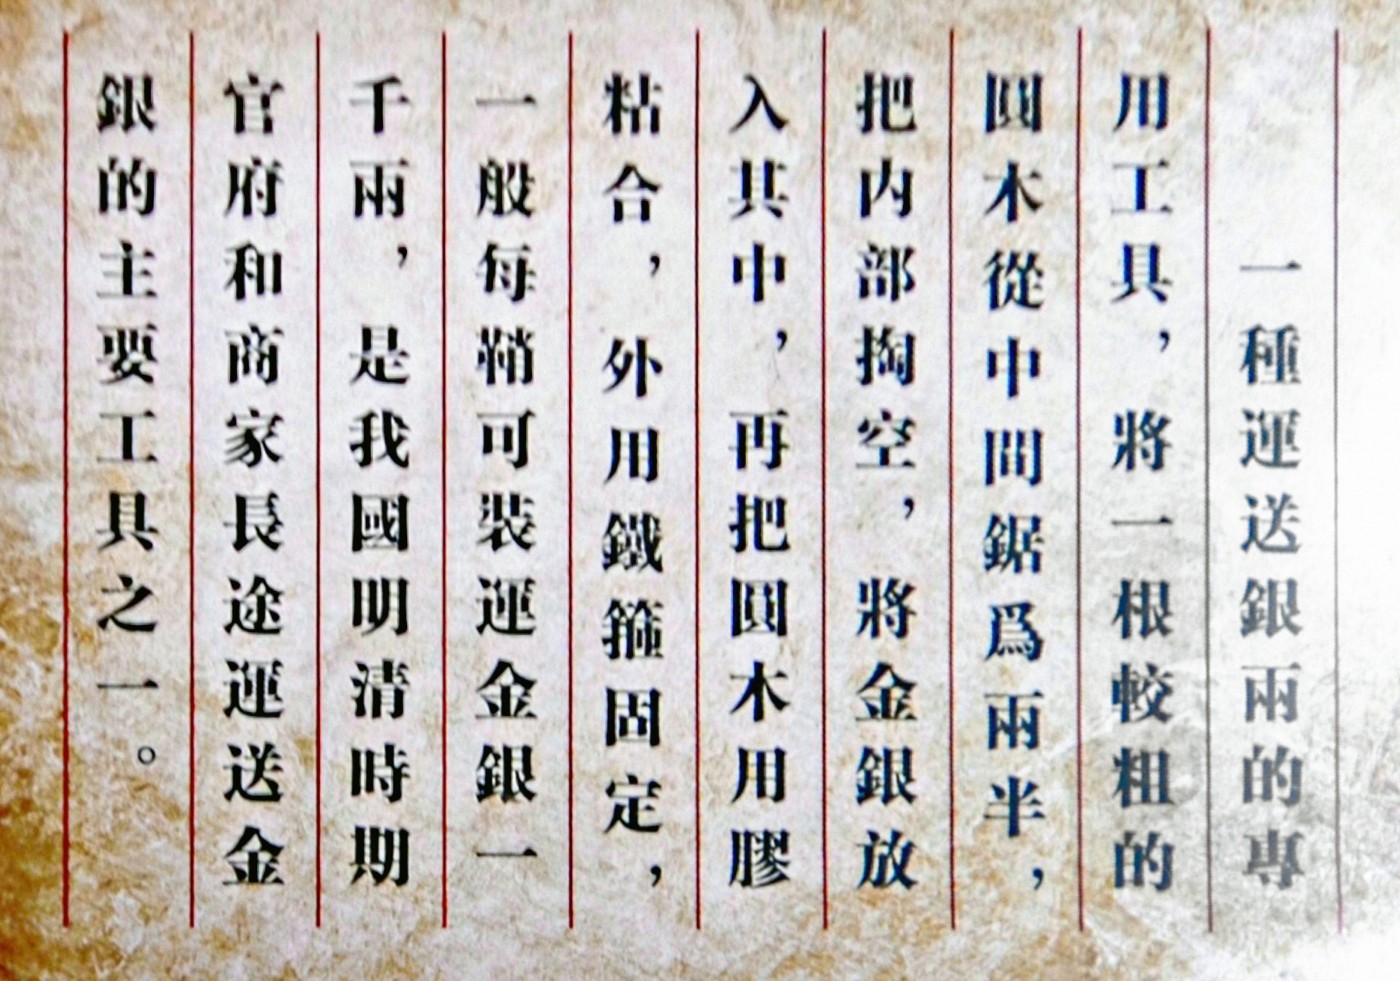 一種運送銀兩的專
用工具，將一根較粗的
圓木從中間鋸爲兩半，
把内部掏空，將金銀放
入其中，再把圓木用膠
粘合，外用鐵箍固定，
一般每鞘可裝運金銀一
千兩，是我國明清時期
官府和商家長途運送金
銀的主要工具之一。